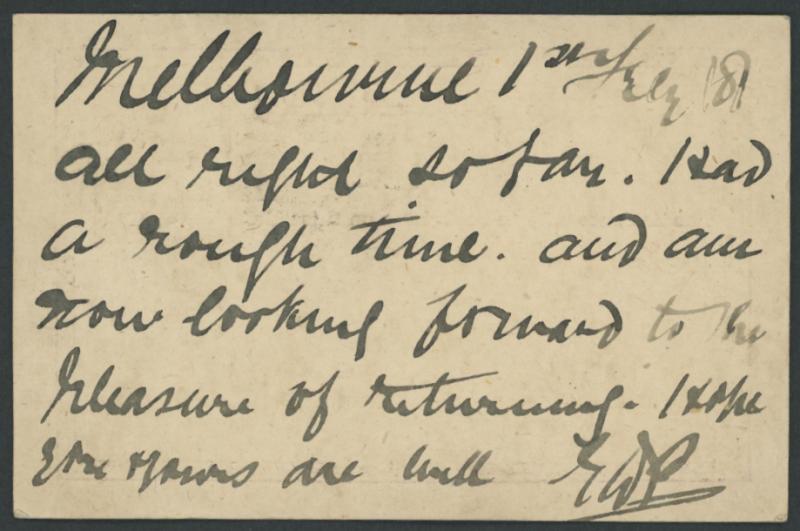 Melbourne 1st July 181
all right so far. Had
a rough time. and am
now looking forward to the
pleasure of returning. Hope
you & yours are well EWP